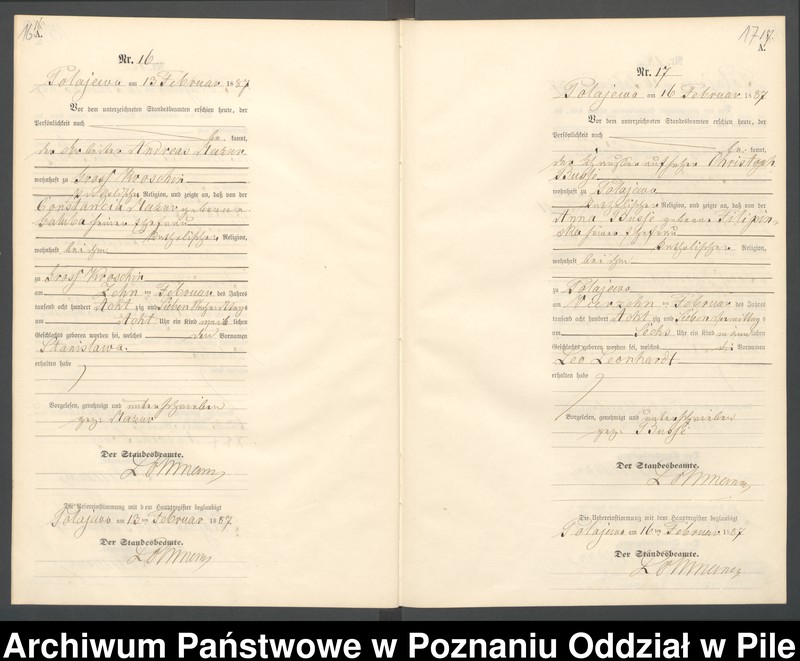 16
16
A.
Nr. 16
Polajewo am 13 Februar 1887
Vor dem unterzeichneten Standesbeamten erschien heute, der
Persönlichkeit nach
be kannt,
der Arbeiter Andreas Mazur
wohnhaft zu Gross Kroschin
katholischer Religion, und zeigte an, daß von der
Constancia Mazur geborene
seiner Ehefrau
katholischer Religion,
wohnhaft bei ihm
zu Gross Kroschin
am Zehn ten Februar des Jahres
tausend acht hundert Acht zig und Sieben
um Acht Uhr ein Kind weib lichen
Geschlechts geboren worden sei, welches den Vornamen
Stanislawa.
erhalten habe
Vorgelesen, genehmigt und unterschrieben
gez. Mazur
Der Standesbeamte.
Die Uebereinstimmung mit dem Hauptregister beglaubigt
Polajewo am 13 ten Februar 1887
Der Standesbeamte.
17
17.
A.
Nr. 17
Polajewo am 16 Februar 1887
Vor dem unterzeichneten Standesbeamten erschien heute, der
Persönlichkeit nach
be kannt,
der Chausseeaufseher Christoph
Busse
wohnhaft zu Polajewo
katholischer Religion, und zeigte an, daß von der
Anna Busse geborene Filipin-
ska seiner Ehefrau
katholischer Religion,
wohnhaft bei ihm
zu Polajewo
am Vierzehn ten Februar des Jahres
tausend acht hundert Acht zig und Sieben
um Sechs Uhr ein Kind männlichen
Geschlechts geboren worden sei, welches die Vornamen
Leo Leonhardt
erhalten habe
Vorgelesen, genehmigt und unterschrieben
gez. Busse
Der Standesbeamte.
Die Uebereinstimmung mit dem Hauptregister beglaubigt
Polajewo am 16 ten Februar 1887
Der Standesbeamte.
Archiwum Państwowe w Poznaniu Oddział w Pile